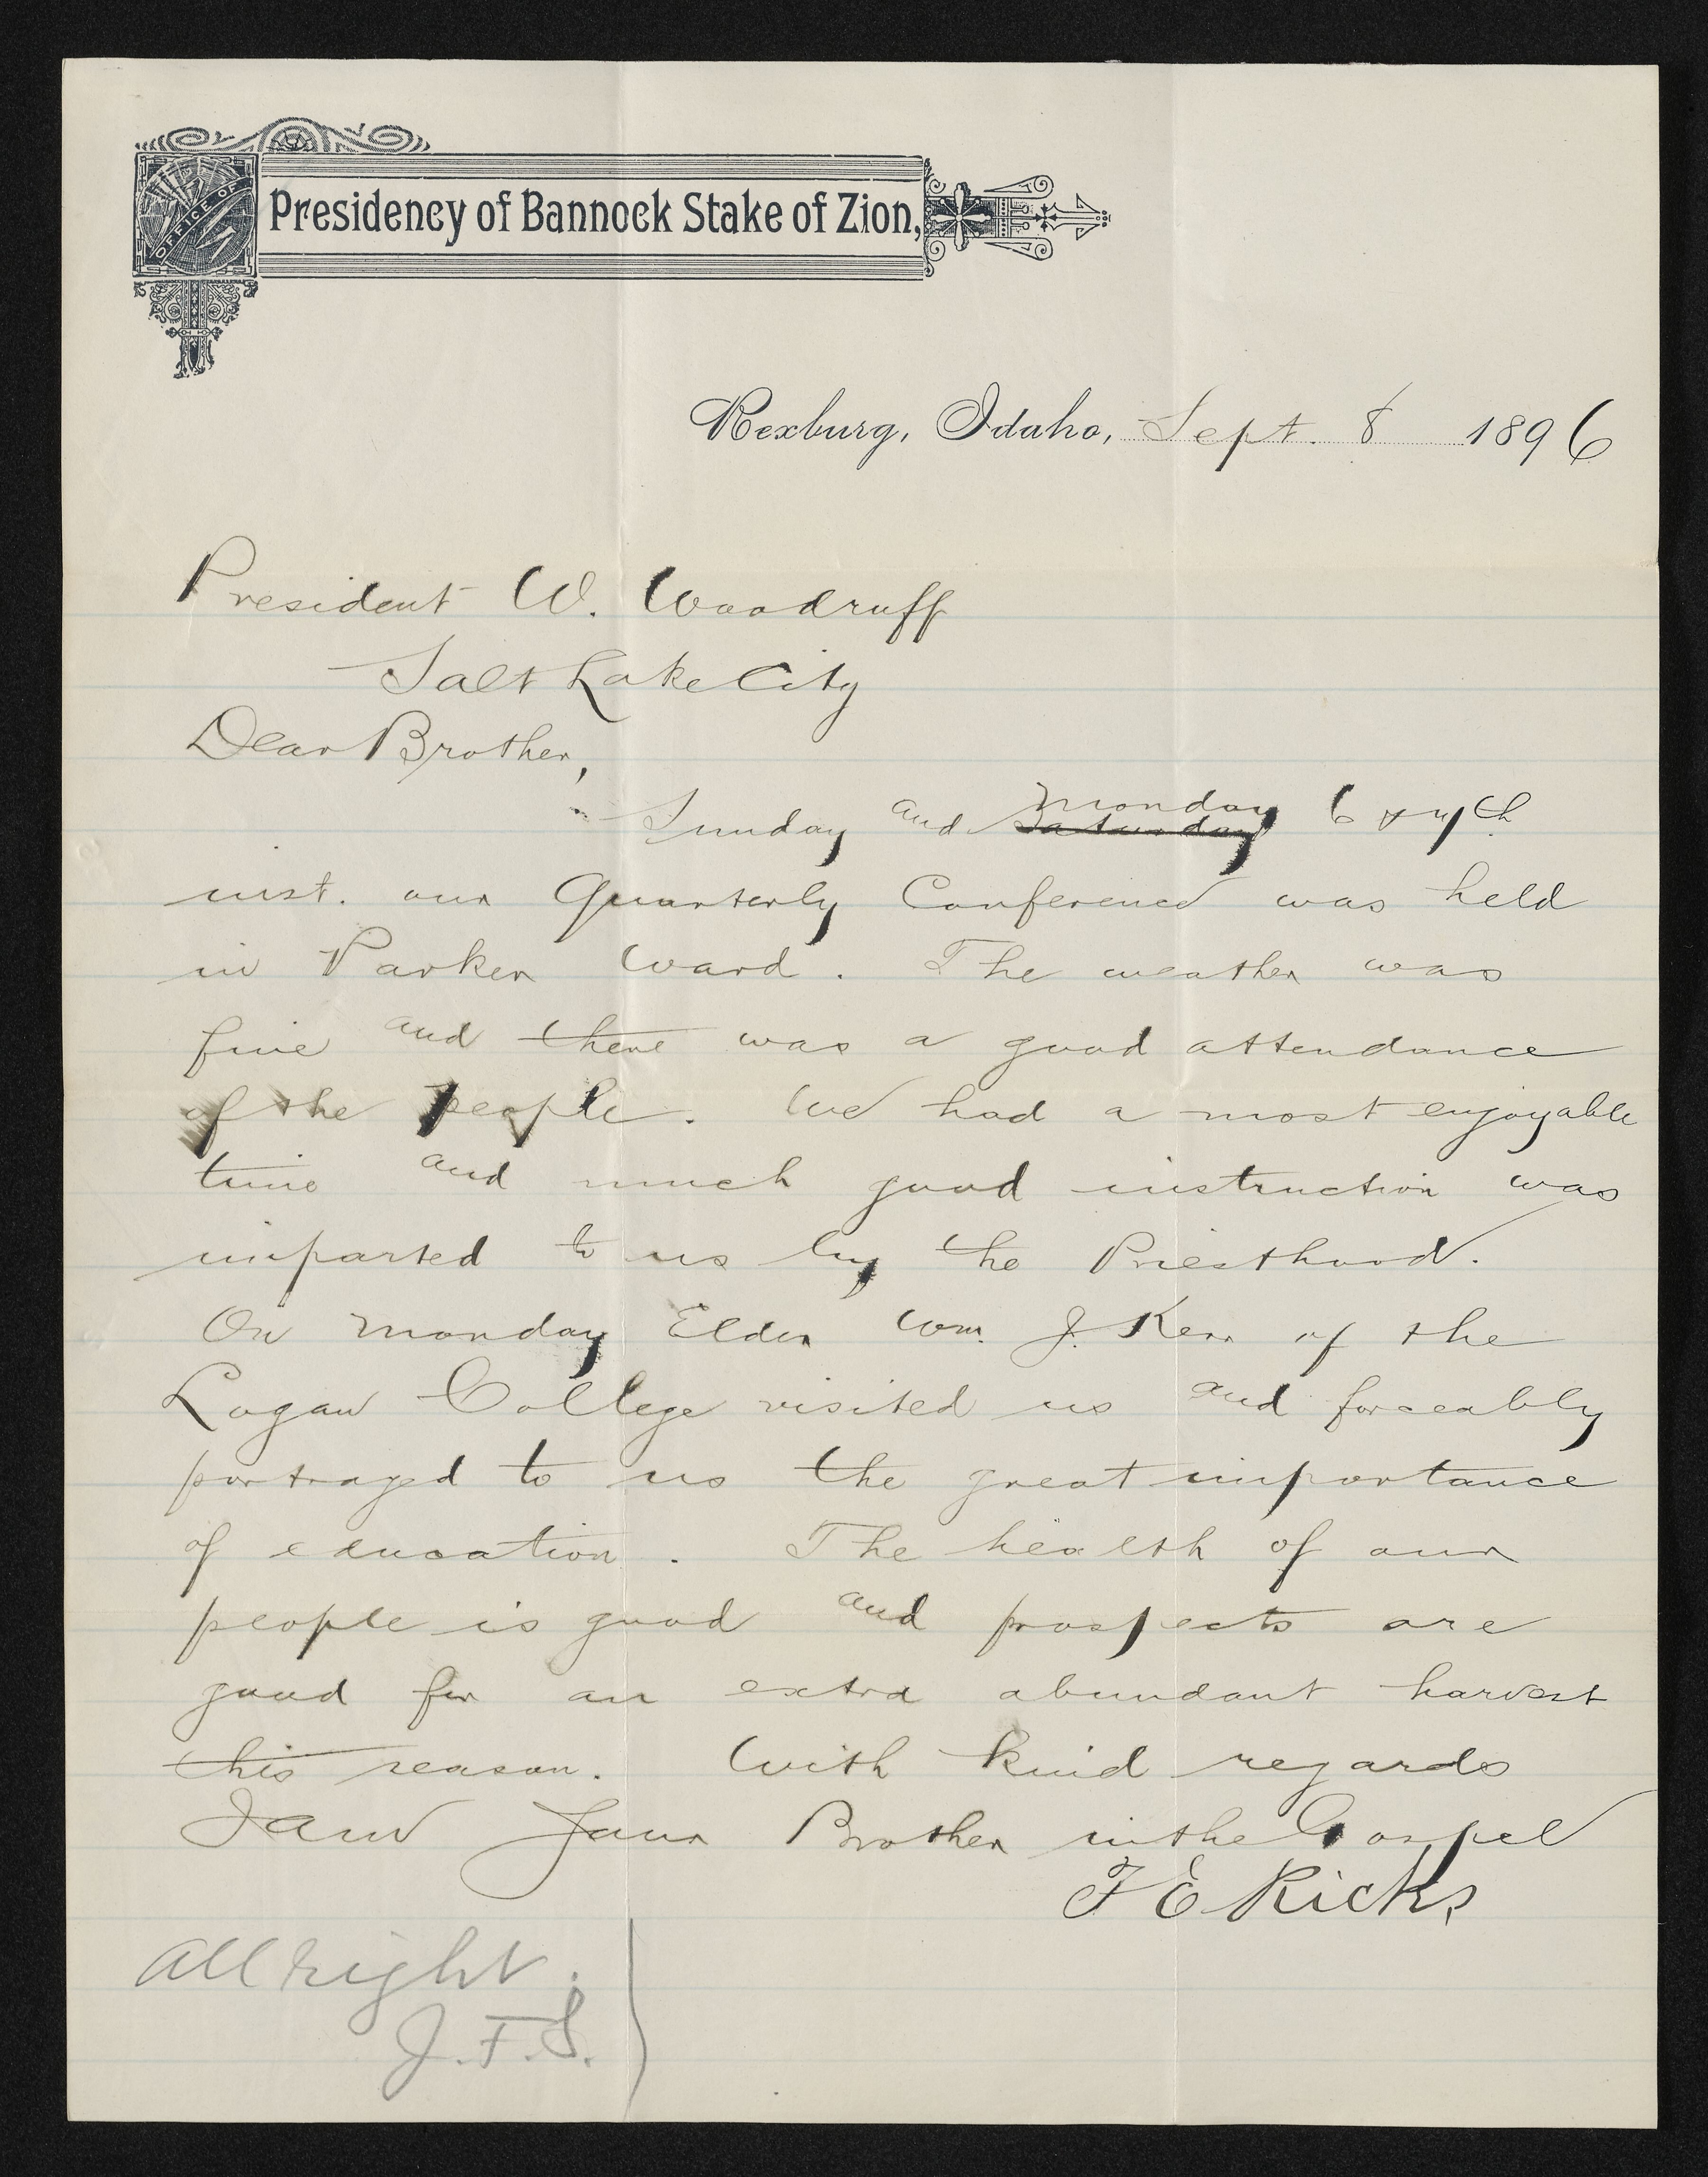 OFFICE OF
Presidency of Bannock Stake of Zion,
Rexburg, Idaho, Sept. 8 1896
President W. Woodruff
Salt Lake City
Dear Brother,
Sunday and Saturday Monday 6 & 7th
inst. our Quarterly Conference was held
in Parker Ward. The weather was
fine and there was a good attendance
of the people. We had a most enjoyable
time and much good instruction was
imparted to us by the Priesthood.
On Monday Elder Wm. J. Kerr of the
Logan College visited us and forceably
portrayed to us the great importance
of education. The health of our
people is good and prospects are
good for an extra abundant harvest
this season. With kind regards
I am Your Brother in the Gospel
T E Ricks
All right.
J.F.S.